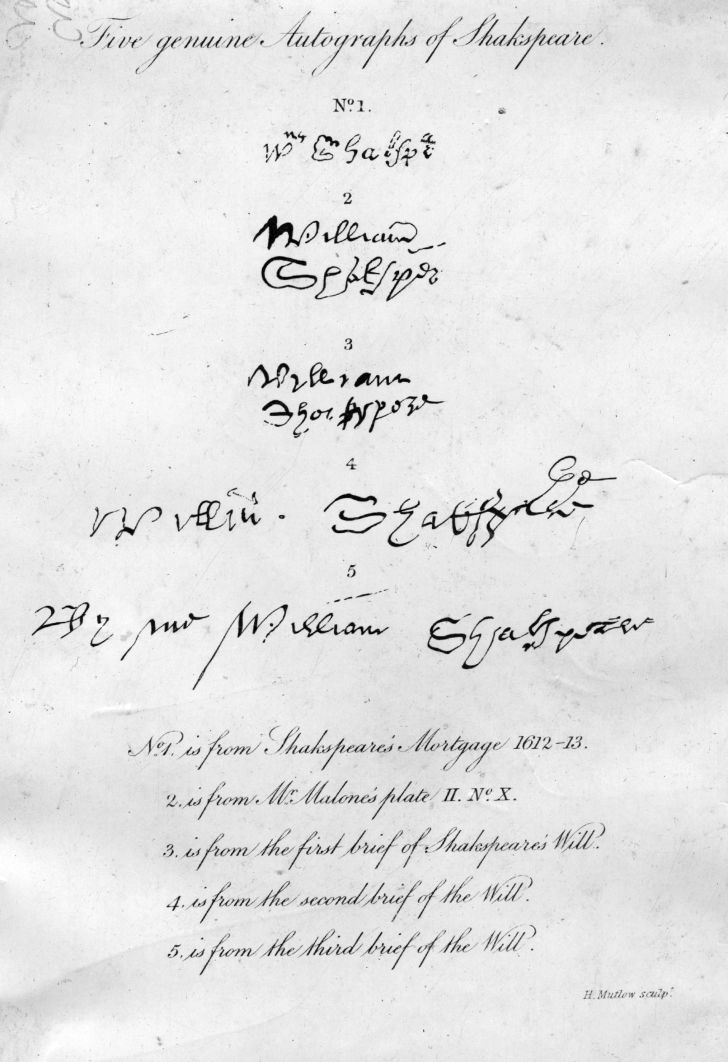 Five genuine Autographs of Shakspeare.
No. 1.
Wm Shakspe
2
William
Shaksper
3
William
Shakspere
4
Willm. Shakspere
5
By me William Shakspeare
No. 1. is from Shakspeare's Mortgage 1612-13.
2. is from Mr. Malone's plate II. No. X.
3. is from the first brief of Shakspeare's Will.
4. is from the second brief of the Will.
5. is from the third brief of the Will.
H. Mutlow sculpt.